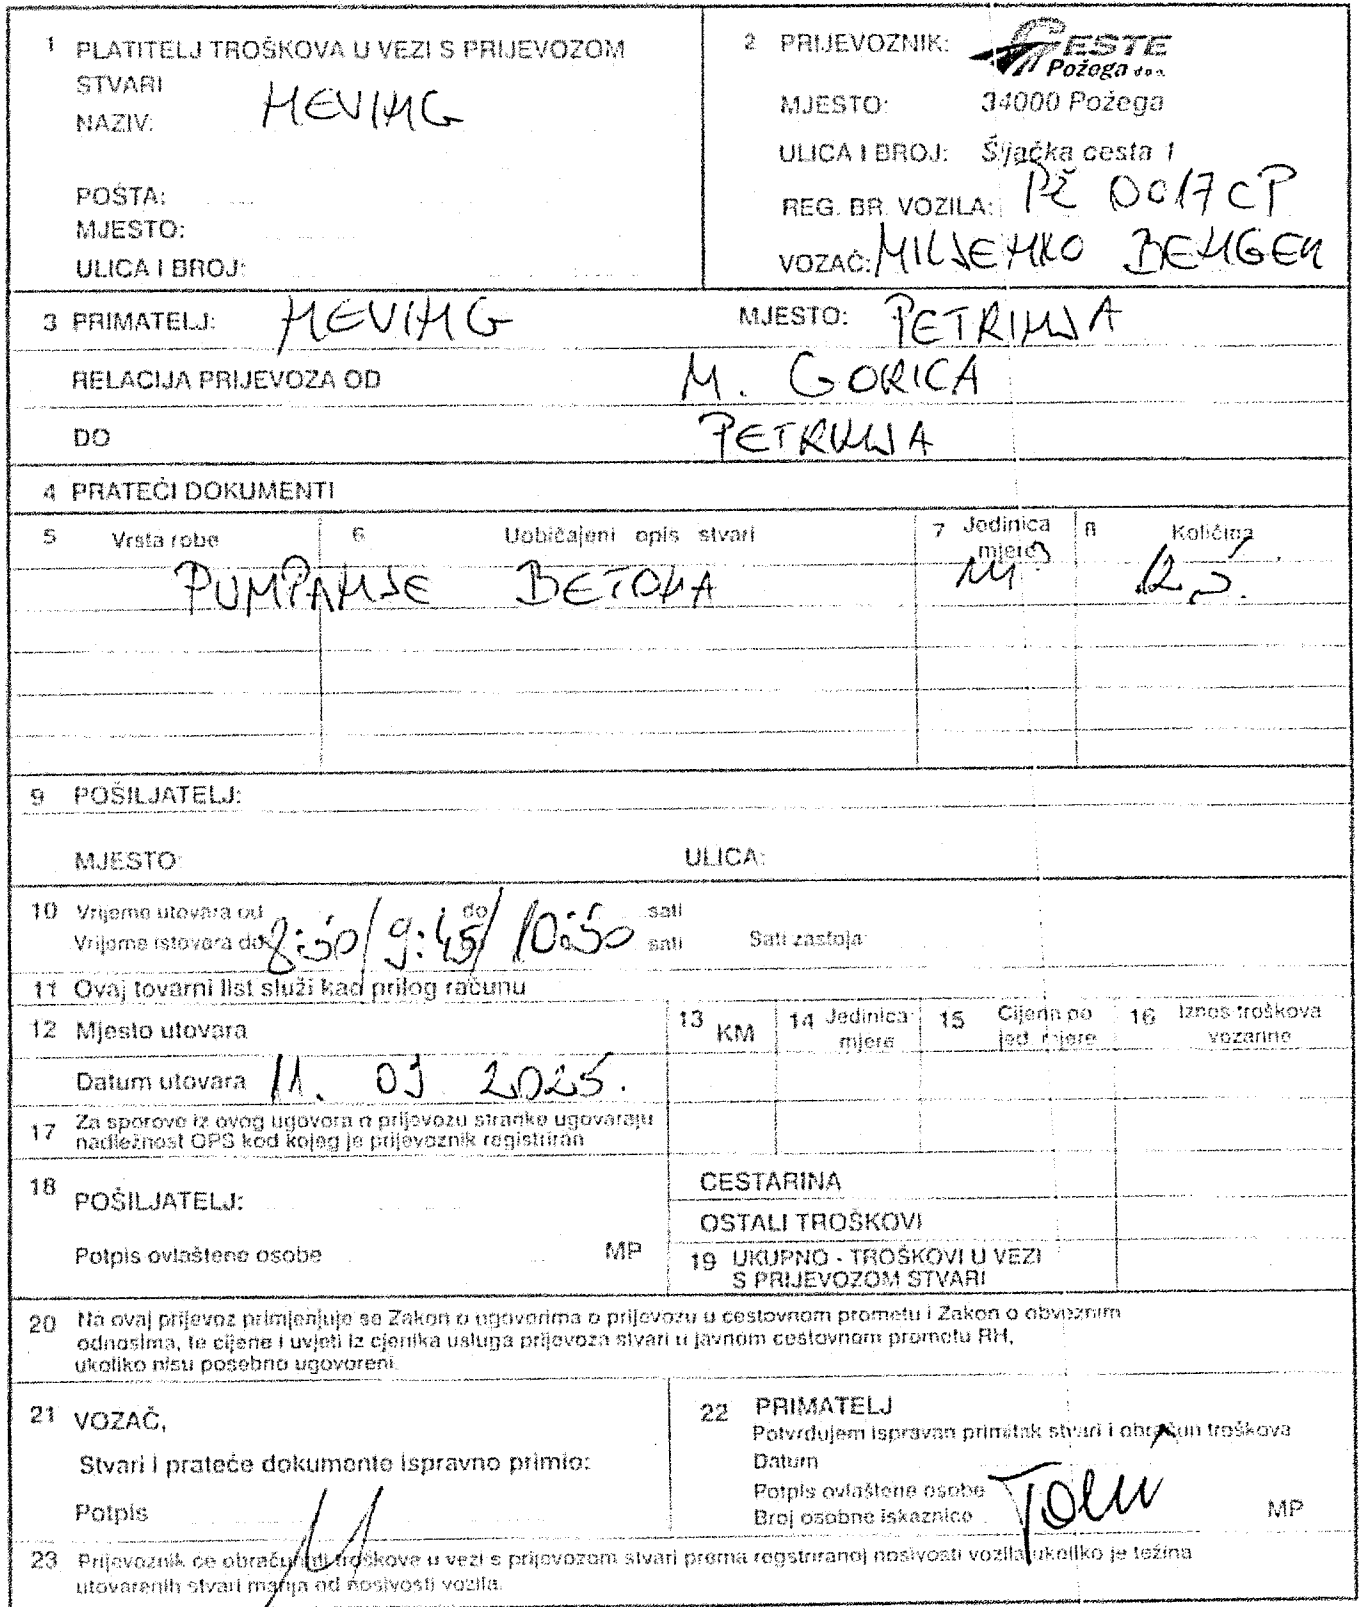 1 PLATITELJ TROŠKOVA U VEZI S PRIJEVOZOM
STVARI
NAZIV: HEVING
POŠTA:
MJESTO:
ULICA I BROJ:
2 PRIJEVOZNIK: CESTE
Požega d.o.o.
MJESTO: 34000 Požega
ULICA I BROJ: Šijačka cesta 1
REG. BR. VOZILA: PŽ 0017 CP
VOZAČ: MILJENKO
3 PRIMATELJ: HEVING MJESTO: PETRINJA
RELACIJA PRIJEVOZA OD GORICA
DO PETRINJA
4 PRATEĆI DOKUMENTI
5 Vrsta robe 6 Uobičajeni opis stvari 7 Jedinica mjere 8 Količina
PUMPANJE BETONA m3
9 POŠILJATELJ:
MJESTO: ULICA:
10 Vrijeme utovara od do sati
Vrijeme istovara do 9:45 sati Sati zastoja
11 Ovaj tovarni list služi kao prilog računu
12 Mjesto utovara 13 KM 14 Jedinica mjere 15 Cijena po jed. mjere 16 Iznos troškova vozarine
Datum utovara 11. 2025.
17 Za sporove iz ovog ugovora o prijevozu stranke ugovaraju
nadležnost OPS kod kojeg je prijevoznik registriran
18 POŠILJATELJ:
Potpis ovlaštene osobe MP
CESTARINA
OSTALI TROŠKOVI
19 UKUPNO - TROŠKOVI U VEZI
S PRIJEVOZOM STVARI
20 Na ovaj prijevoz primjenjuje se Zakon o ugovorima o prijevozu u cestovnom prometu i Zakon o obveznim
odnosima, te cijene i uvjeti iz cjenika usluga prijevoza stvari u javnom cestovnom prometu RH,
ukoliko nisu posebno ugovoreni.
21 VOZAČ,
Stvari i prateće dokumente ispravno primio:
Potpis
22 PRIMATELJ
Potvrdujem ispravan primitak stvari i obračun troškova
Datum
Potpis ovlaštene osobe
Broj osobne iskaznice MP
23 Prijevoznik će obračunati troškove u vezi s prijevozom stvari prema regstriranoj nosivosti vozila ukoliko je težina
utovarenih stvari manja od nosivosti vozila.